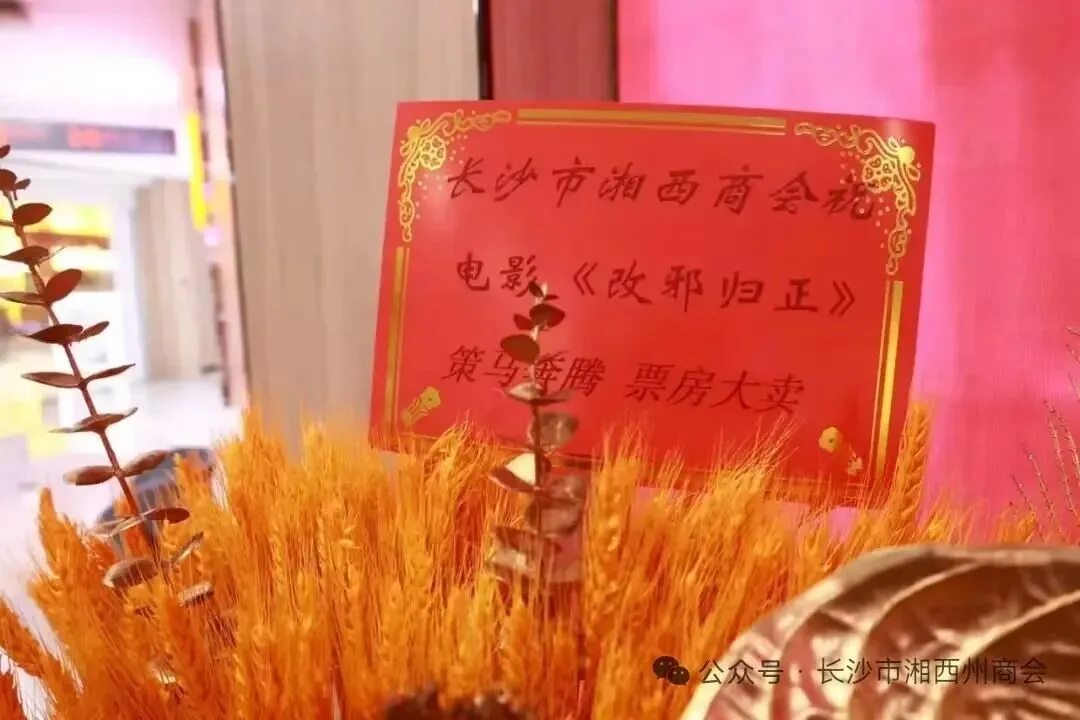 长沙市湘西商会祝
电影《改邪归正》
策马奔腾 票房大卖
公众号·长沙市湘西州商会